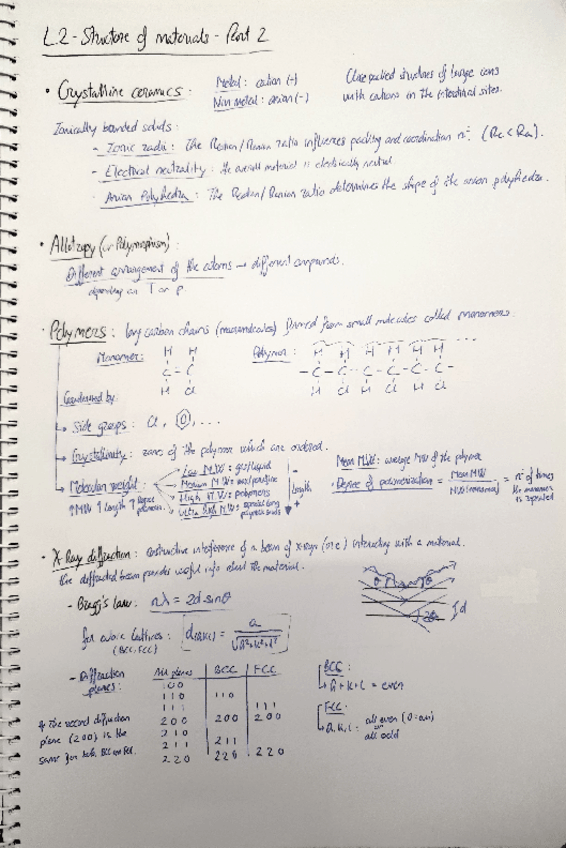 L.2 - Structure of materials - Part 2
• Crystalline ceramics :
Metal : cation (+)
Non metal : anion (-)
Close packed structures of large ions
with cations in the interstitial sites.
Ionically bonded solids :
- Ionic radii : The Rcation/Ranion ratio influences packing and coordination nº. (Rc < Ra).
- Electrical neutrality : the overall material is electrically neutral.
- Anion Polyhedra : The Rcation/Ranion ratio determines the shape of the anion polyhedra.
• Allotropy (or Polymorphism) :
Different arrangement of the atoms → different compounds.
depending on T or p.
• Polymers : long carbon chains (macromolecules) formed from small molecules called monomers.
Monomer :
H H
C - C
H Cl
Polymer :
H H H H H H
- C - C - C - C - C - C -
H Cl H Cl H Cl
by :
Side groups : Cl, , ...
Crystallinity : zones of the polymer which are ordered.
Molecular weight :
Low MW : gas/liquid
Medium MW :
High MW : polymers
Ultra high MW :
Length
↑MW ↑Length
Mean MW : average MW of the polymer
• Degree of polymerization = Mean MW / MW(monomer) = nº of times
the monomer
is repeated
• X-Ray diffraction : constructive interference of a beam of X-rays (or e-) interacting with a material.
the diffracted beam provides useful info about the material.
- Bragg's law : nλ = 2d sinθ
for cubic lattices :
(BCC, FCC)
d(hkl) = a / √h²+k²+l²
θ θ
d
2θ
- Diffraction
planes :
All planes BCC FCC
100
110 110
111 111
200 200 200
210
211 211
220 220 220
the second diffraction
plane (200) is the
same for both BCC and FCC.
BCC :
h + k + l = even
FCC :
h, k, l : all even (0 = even)
or
all odd